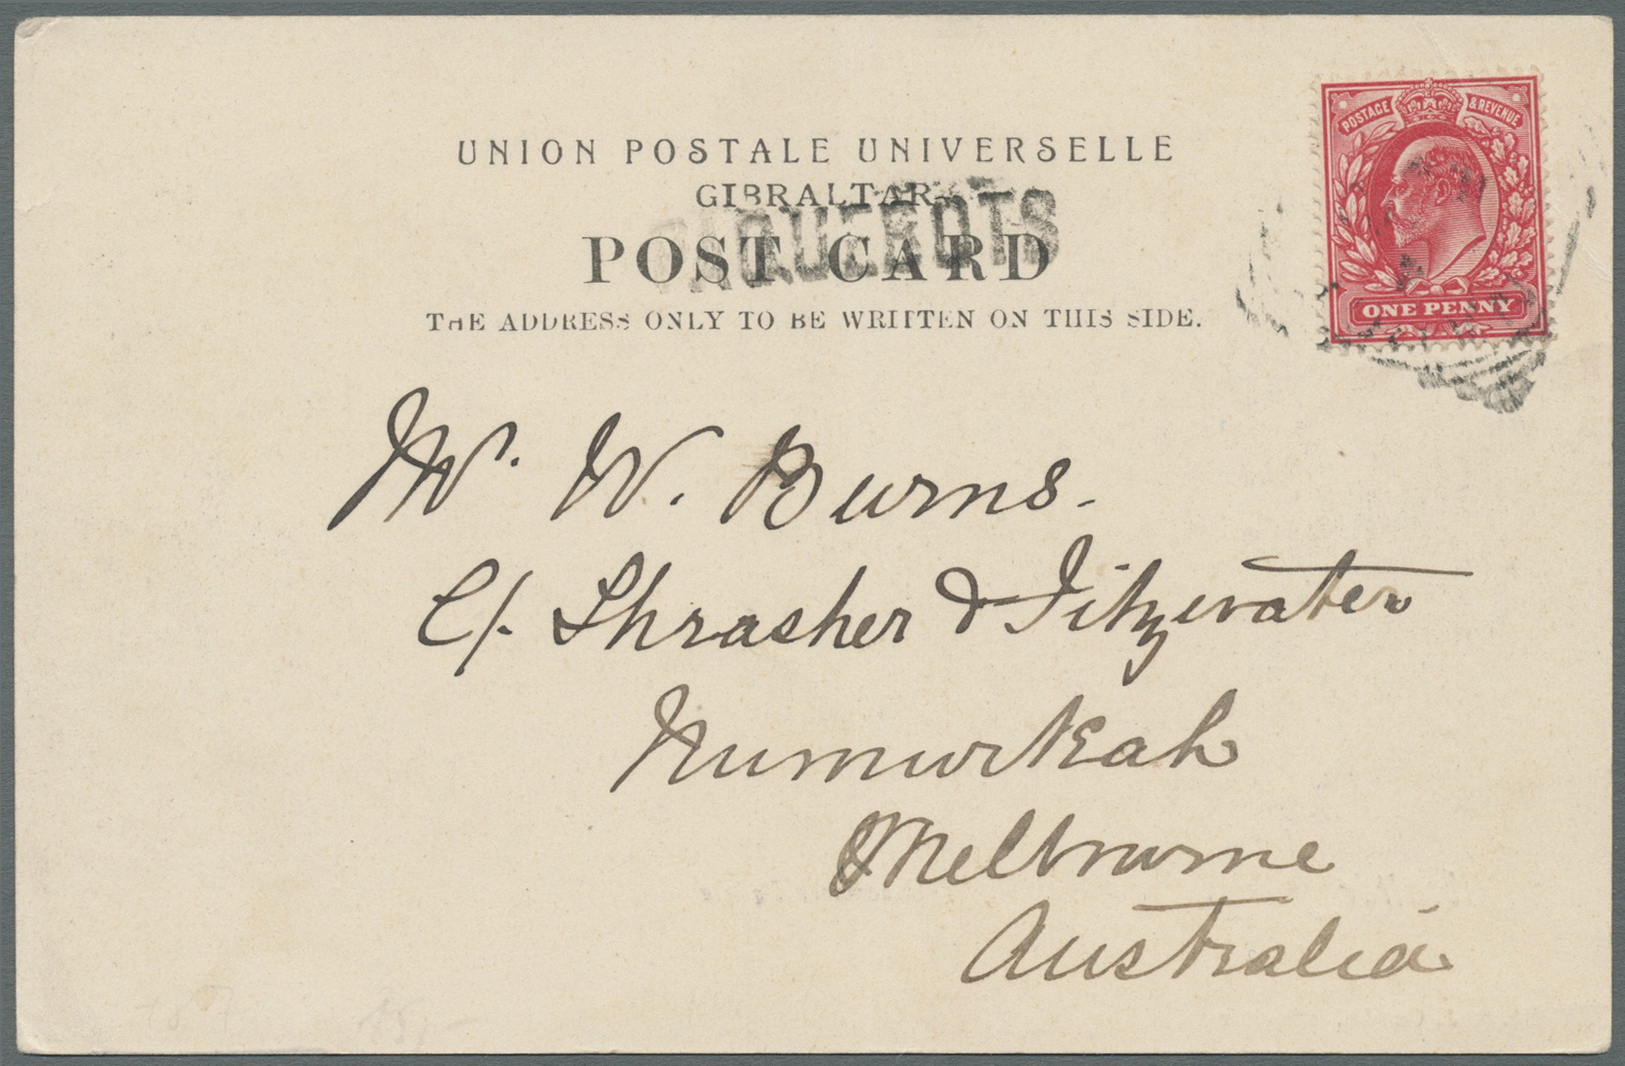 UNION POSTALE UNIVERSELLE
GIBRALTAR
POST CARD
THE ADDRESS ONLY TO BE WRITTEN ON THIS SIDE.
POSTAGE & REVENUE
ONE PENNY
Mr. W. Burns.
C/. Thrasher & Fitzwater
Numurkah
Melbourne
Australia